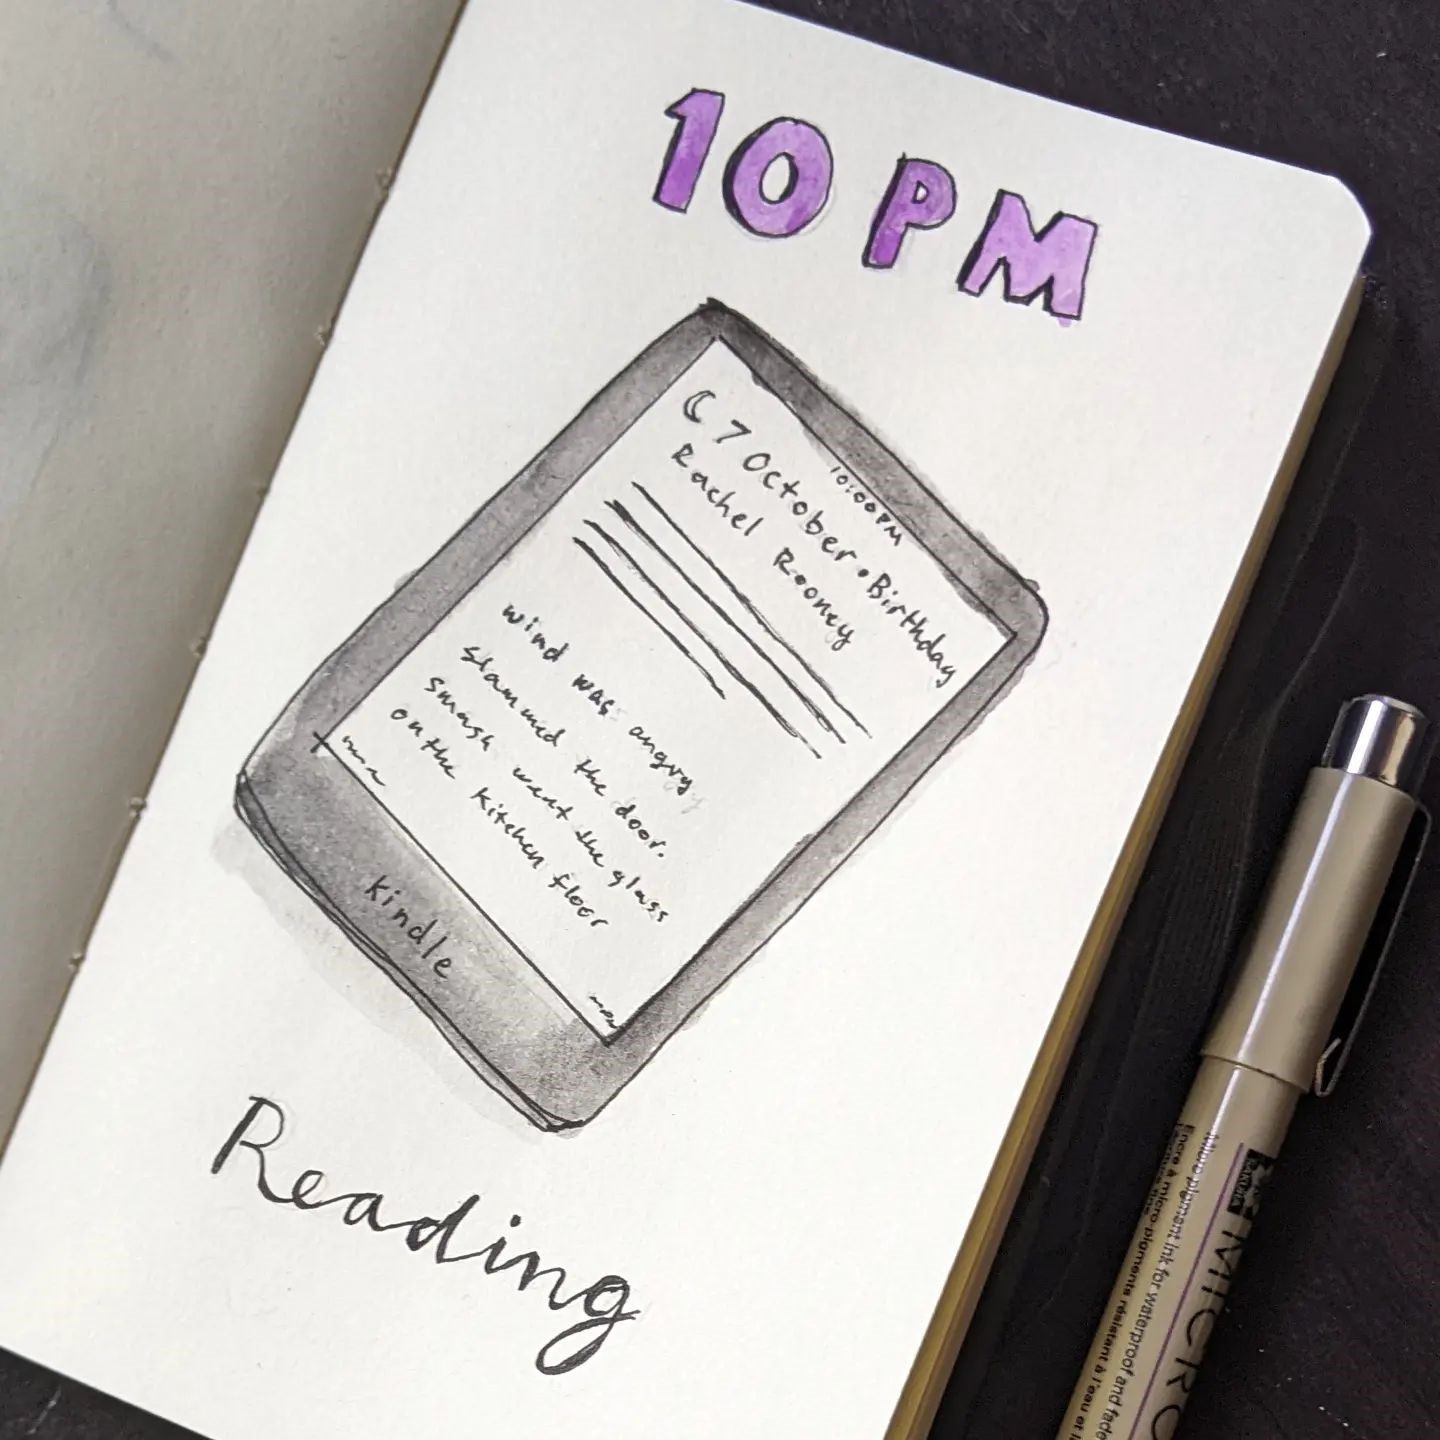 10 PM
10:00PM
7 October • Birthday
Rachel Rooney
wind was angry
slammed the door.
smash went the glass
on the kitchen floor
kindle
Reading
SAKURA
MICRO
Micro pigment ink for waterproof and fade
Encre à micro-pigments résistant à l'eau et